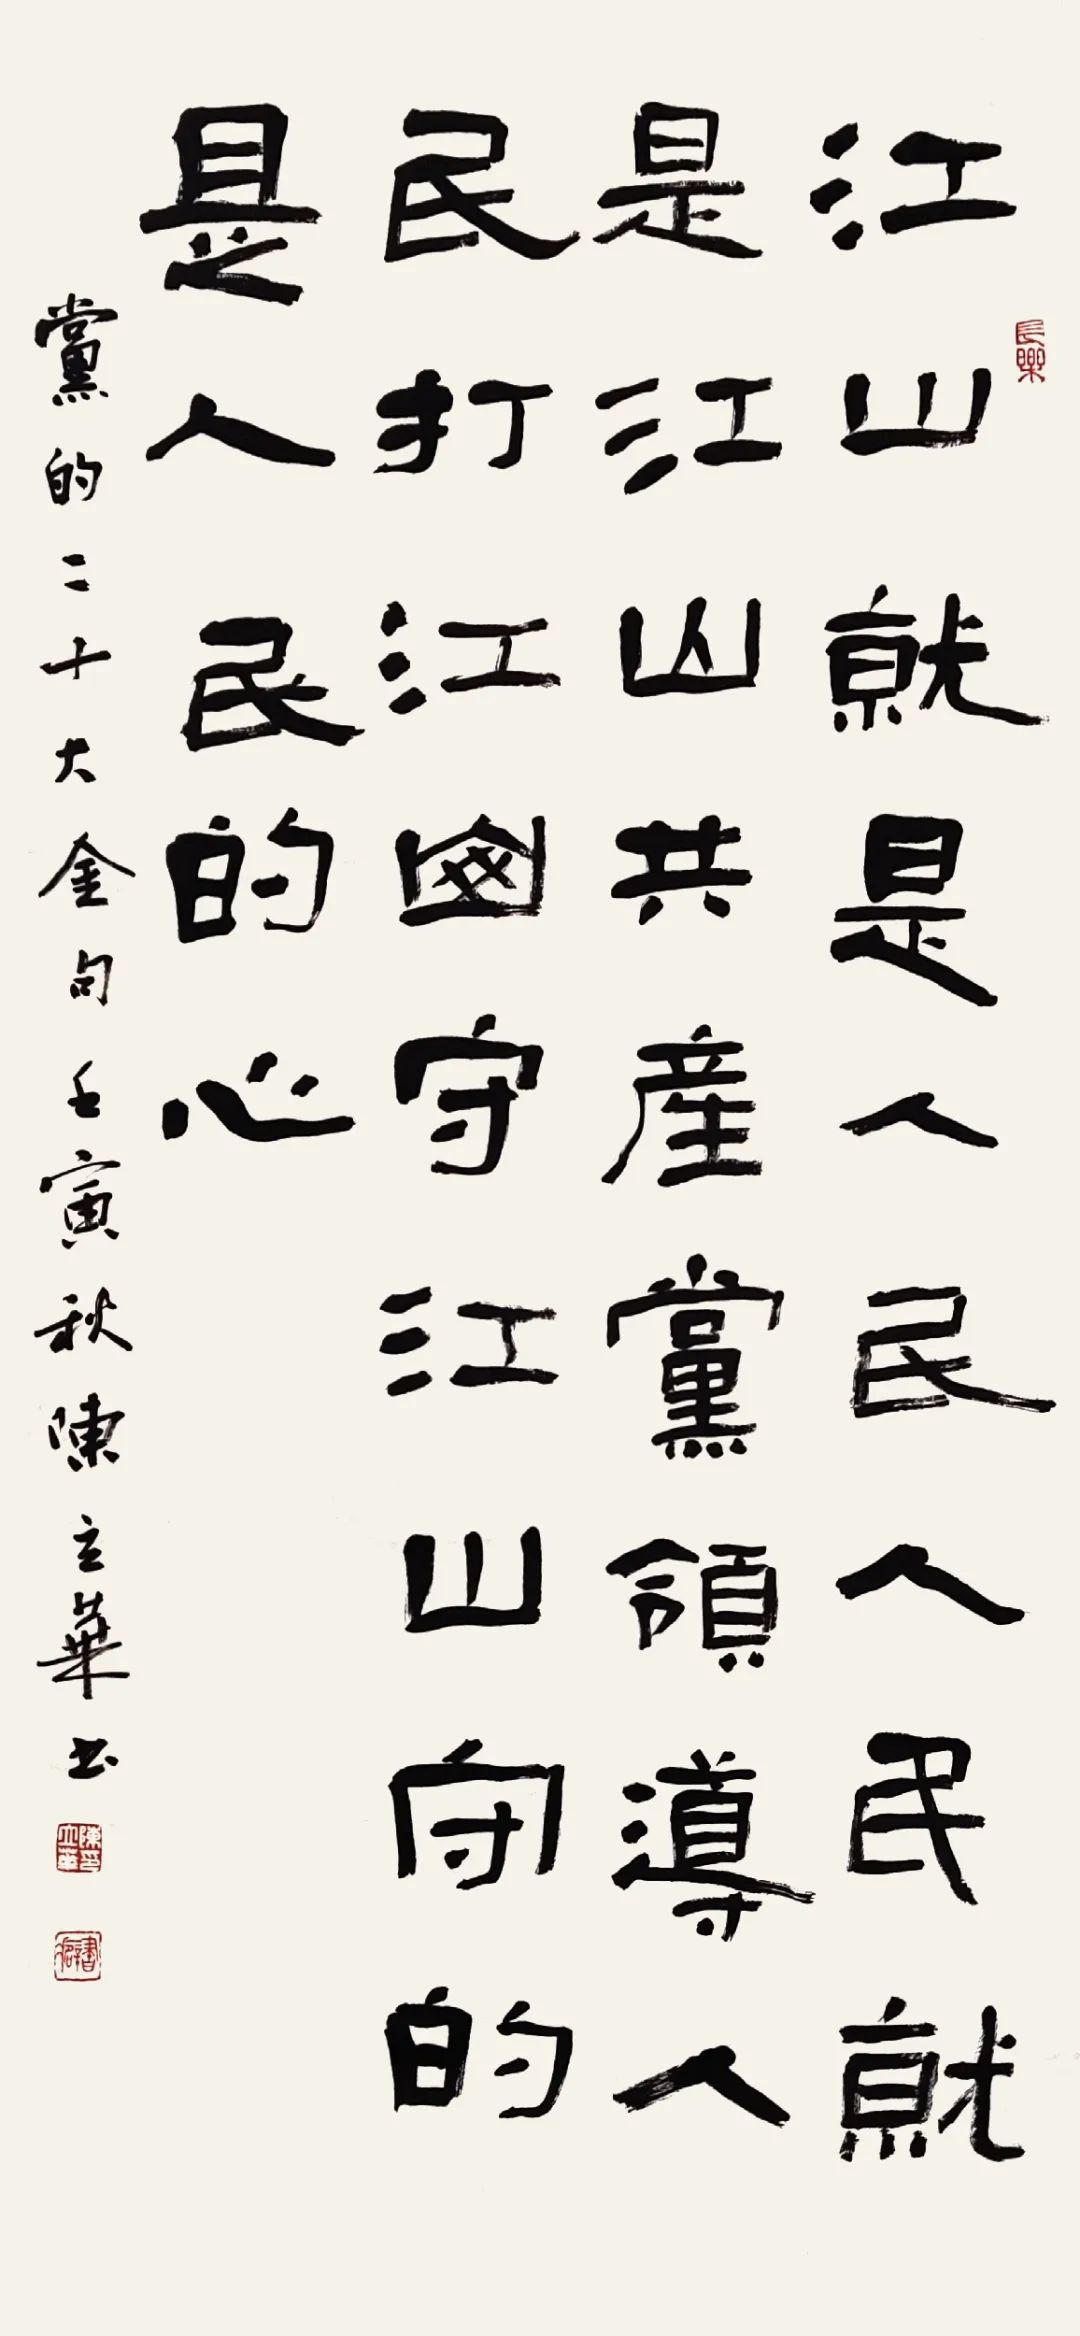 長樂
江山就是人民人民就
是江山共產黨領導人
民打江山守江山守的
是人民的心
黨的二十大金句壬寅秋陳立華书
陳立華印